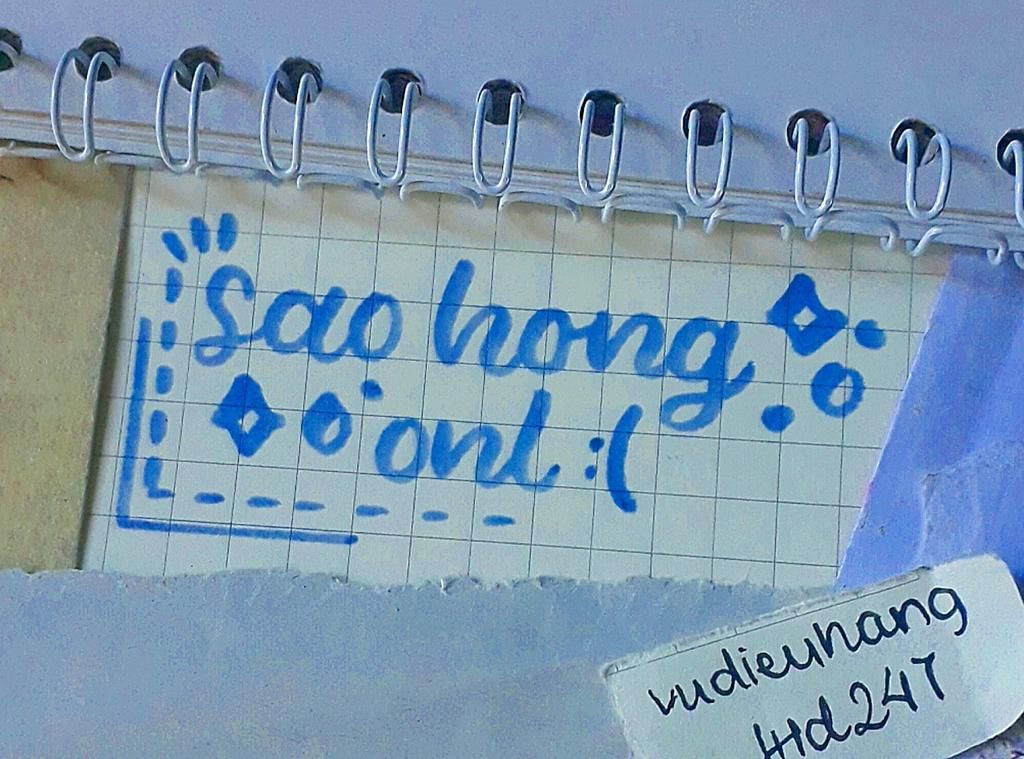 sao hong
onl :(
vudieuhang
4td247